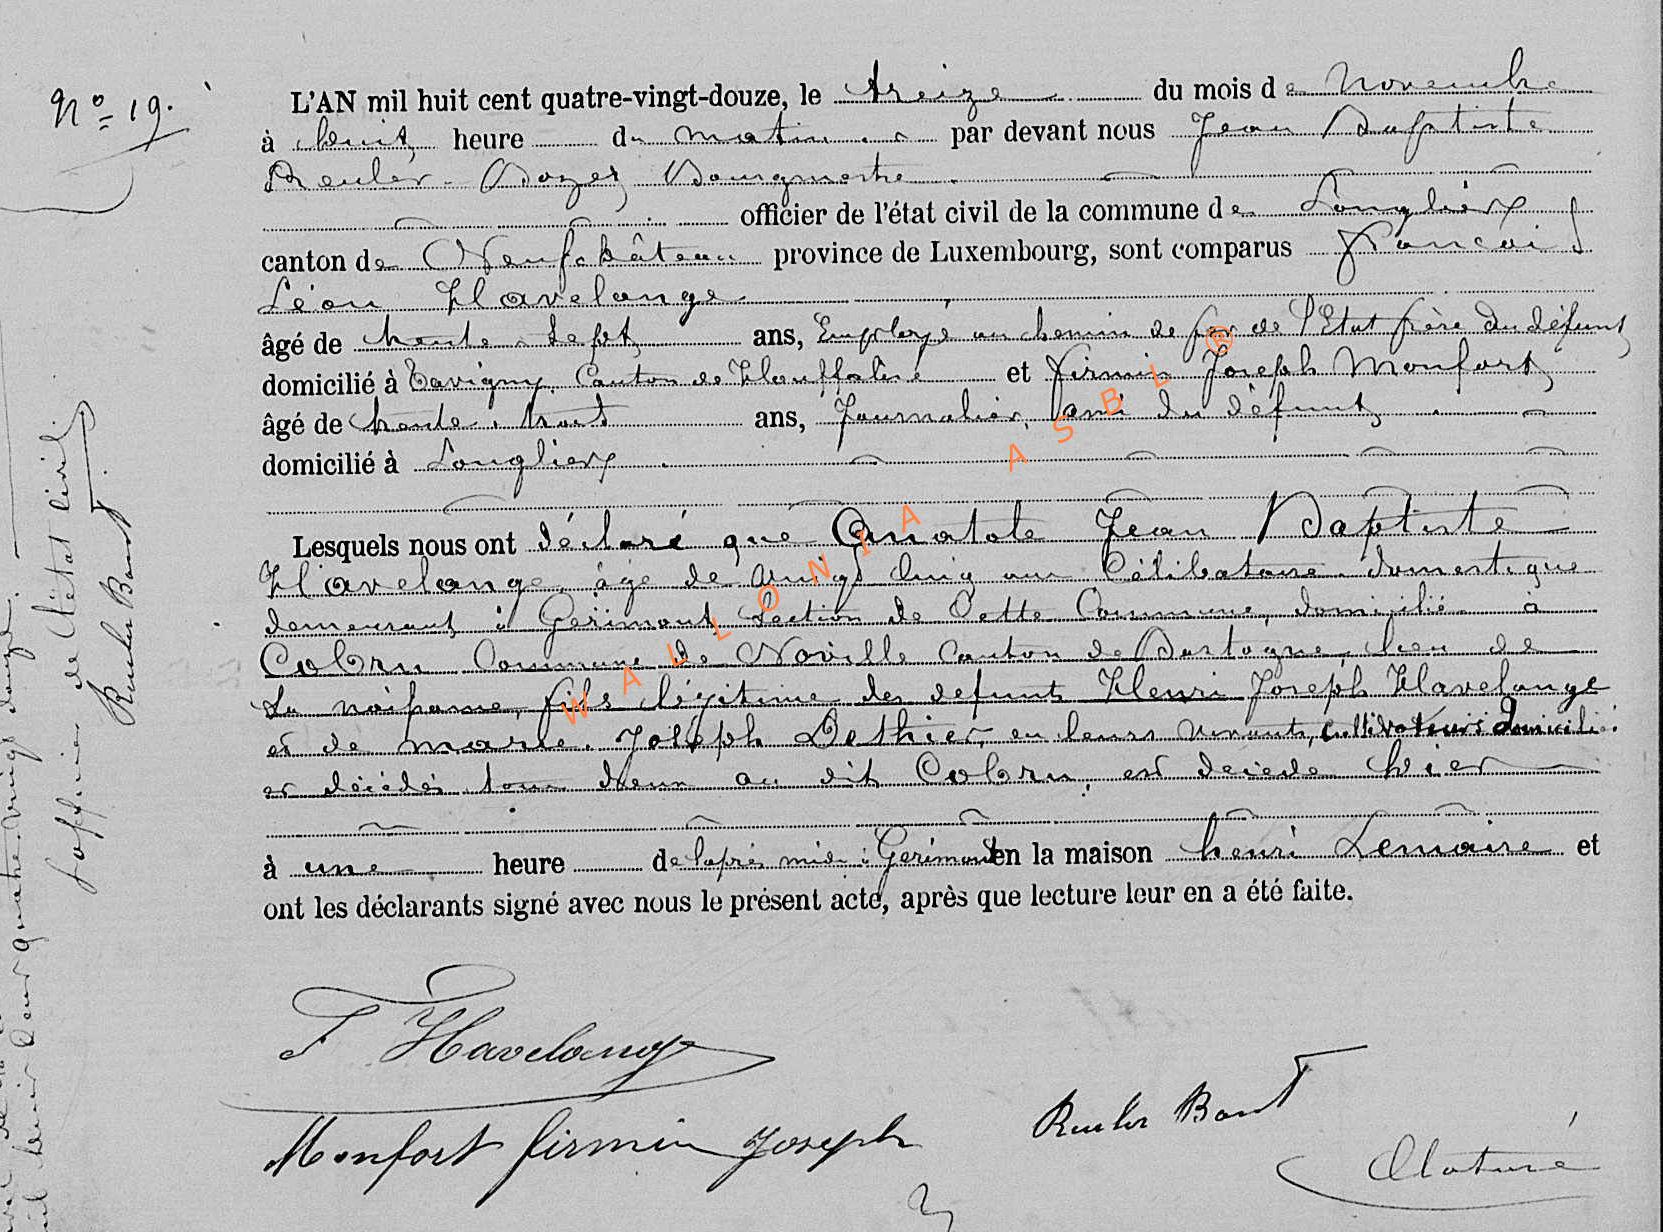 N° 19.
L'AN mil huit cent quatre-vingt-douze, le treize du mois de Novembre
à huit heure du matin par devant nous Jean Baptiste
Reuler Bourgmestre
officier de l'état civil de la commune de Longlier
canton de Neufchâteau province de Luxembourg, sont comparus François
Léon Havelange
âgé de trente sept ans, Employé au chemin de fer de l'Etat frère du défunt
domicilié à Tavigny Canton de Houffalize et Firmin Joseph Monfort
âgé de trente trois ans, Journalier, ami du défunt
domicilié à Longlier
Lesquels nous ont déclaré que Anatole Jean Baptiste
Havelange âgé de vingt cinq ans Célibataire domestique
demeurant à Gérimont section de Cette Commune, domicilié à
Cobru Commune de Noville Canton de Bastogne, lieu de
sa naissance, fils légitime des défunts Henri Joseph Havelange
et de Marie Joseph Dethier, en leurs vivants, cultivateurs domiciliés
et décédés tous deux au dit Cobru, est décédé hier
à une heure de l'après midi à Gerimont en la maison henri Lemaire et
ont les déclarants signé avec nous le présent acte, après que lecture leur en a été faite.
F Havelange
Monfort firmin Joseph
Clôturé
l'officier de l'état civil
WALLONIA ASBL ®